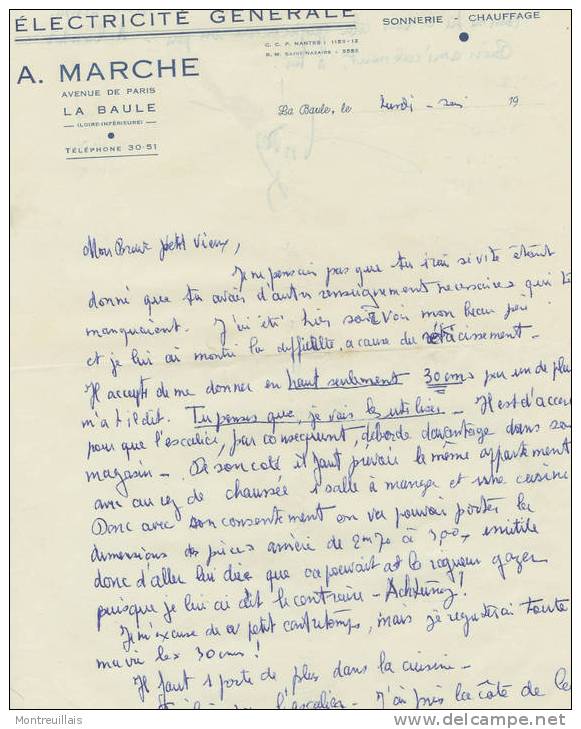 ÉLECTRICITÉ GÉNÉRALE
SONNERIE - CHAUFFAGE
C. C. P. NANTES : 1159-12
R. M. SAINT-NAZAIRE : 5580
A. MARCHE
AVENUE DE PARIS
LA BAULE
(LOIRE-INFÉRIEURE)
TÉLÉPHONE 30-51
La Baule, le Lundi - soir 19
Mon Brave petit Vieux,
Je ne pensais pas que tu irais si vite étant
donné que tu avais d'autres renseignements nécessaires qui te
manquaient. J'ai été hier soir voir mon beau père
et je lui ai montré la difficulté, a cause du rétrécissement -
Il accepte de me donner en haut seulement 30 cms pas un de plus
m'a t il dit. Tu penses que je vais les utiliser - Il est d'accord
pour que l'escalier, par conséquent, déborde davantage dans son
magasin - De son coté il faut prévoir le même appartement
avec au rez de chaussée 1 salle à manger et une cuisine
Donc avec son consentement on va pouvoir porter les
dimensions des pièces arrière de 2m70 à 3,00, inutile
donc d'aller lui dire que ca pouvait a la rigueur gazer
puisque je lui ai dit le contraire - Achtung!
Je m'excuse de ce petit contretemps, mais je regretterai toute
ma vie les 30 cms!
Il faut 1 porte de plus dans la cuisine -
l'escalier - J'ai pris la côte de
Montreuillais
www.delcampe.net